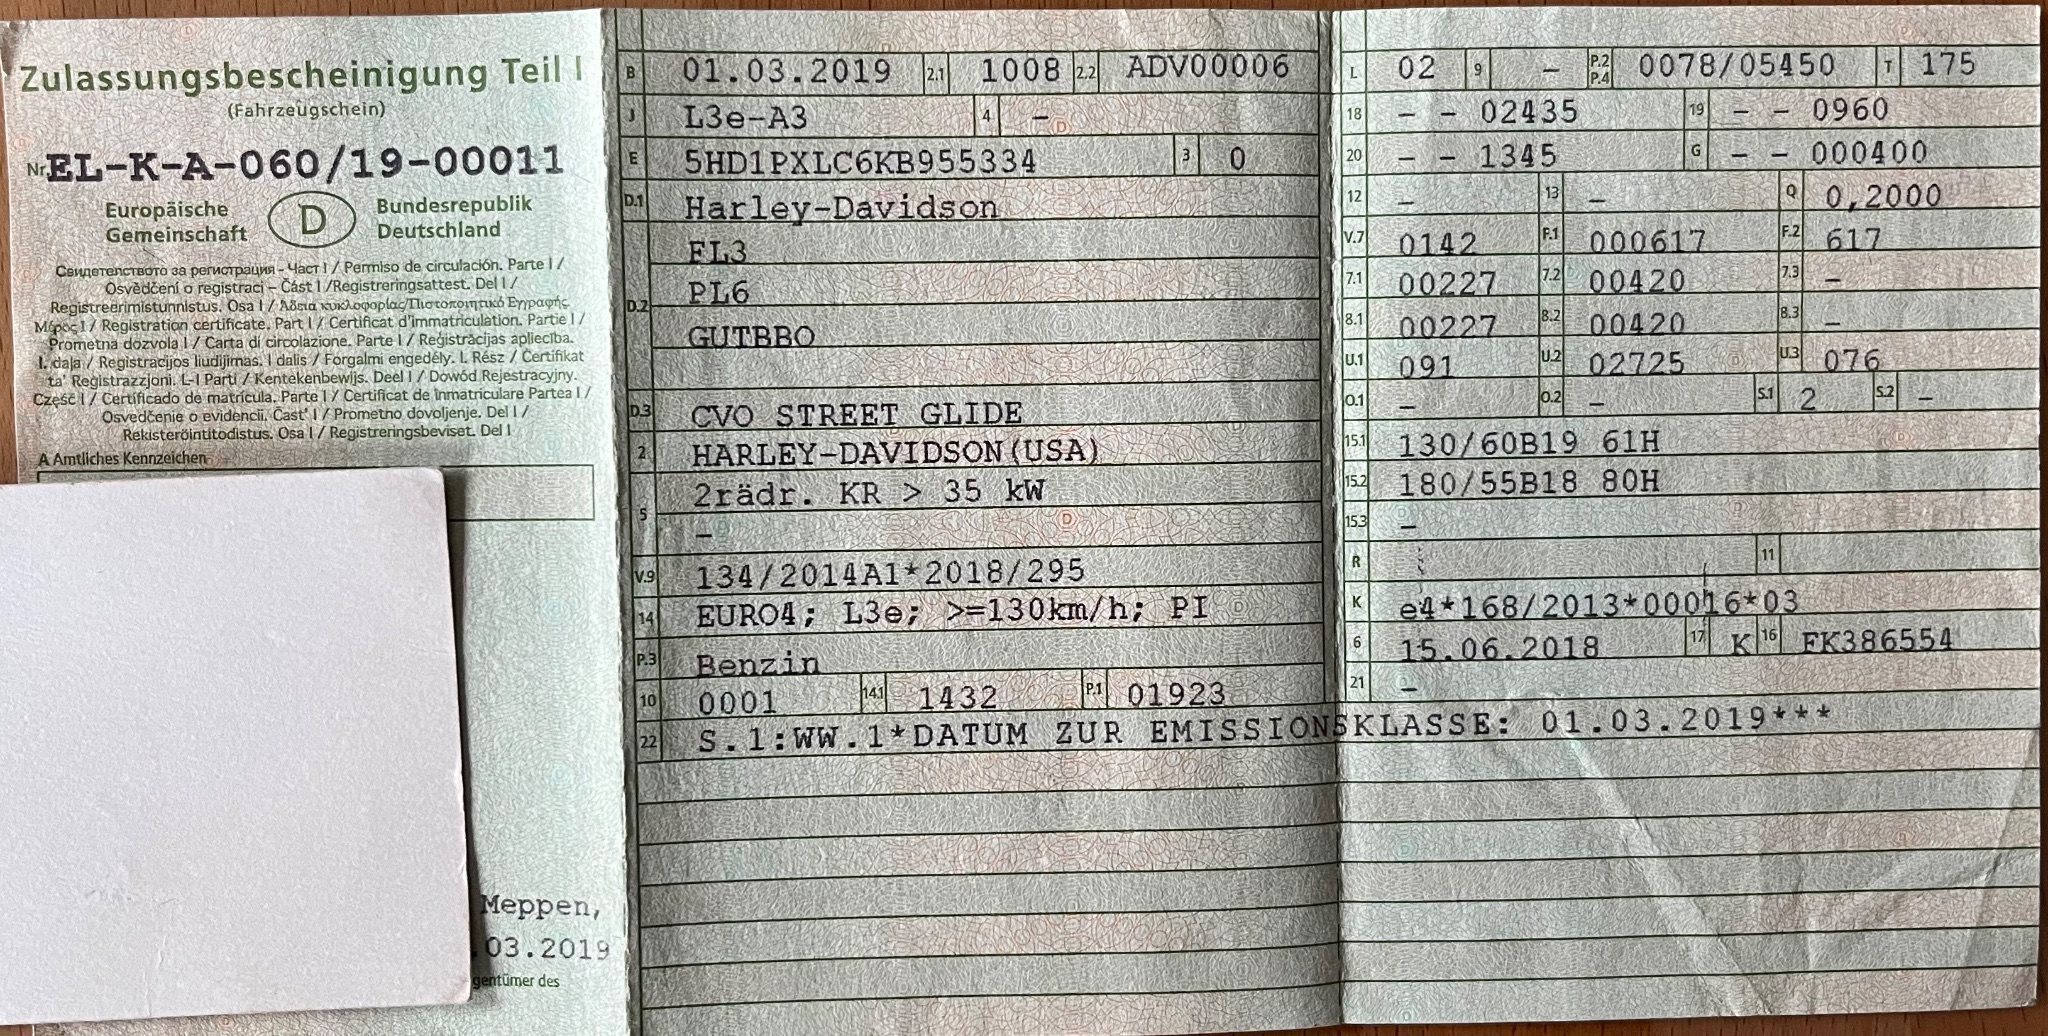 Zulassungsbescheinigung Teil I
(Fahrzeugschein)
Nr. EL-K-A-060/19-00011
Europäische Gemeinschaft
D
Bundesrepublik Deutschland
Свидетелството за регистрация - Част I / Permiso de circulación. Parte I /
Osvědčení o registraci – Část I /Registreringsattest. Del I /
Registreerimistunnistus. Osa I / Άδεια κυκλοφορίας/Πιστοποιητικό Εγγραφής
Μέρος I / Registration certificate. Part I / Certificat d'immatriculation. Partie I /
Prometna dozvola I / Carta di circolazione. Parte I / Reģistrācijas apliecība.
I. daļa / Registracijos liudijimas. I dalis / Forgalmi engedély. I. Rész / Ċertifikat
ta' Reġistrazzjoni. L-I Parti / Kentekenbewijs. Deel I / Dowód Rejestracyjny.
Część I / Certificado de matrícula. Parte I / Certificat de înmatriculare Partea I /
Osvedčenie o evidencii. Časť I / Prometno dovoljenje. Del I /
Rekisteröintitodistus. Osa I / Registreringsbeviset. Del I
A Amtliches Kennzeichen
Meppen,
.03.2019
gentümer des
B 01.03.2019 2.1 1008 2.2 ADV00006
J L3e-A3 4 –
E 5HD1PXLC6KB955334 3 0
D.1 Harley-Davidson
D.2 FL3
PL6
GUTBBO
D.3 CVO STREET GLIDE
2 HARLEY-DAVIDSON(USA)
5 2rädr. KR > 35 kW
–
V.9 134/2014A1*2018/295
14 EURO4; L3e; >=130km/h; PI
P.3 Benzin
10 0001 14.1 1432 P.1 01923
22 S.1:WW.1*DATUM ZUR EMISSIONSKLASSE: 01.03.2019***
L 02 9 – P.2 P.4 0078/05450 T 175
18 – – 02435 19 – – 0960
20 – – 1345 G – – 000400
12 – 13 – Q 0,2000
V.7 0142 F.1 000617 F.2 617
7.1 00227 7.2 00420 7.3 –
8.1 00227 8.2 00420 8.3 –
U.1 091 U.2 02725 U.3 076
O.1 – O.2 – S.1 2 S.2 –
15.1 130/60B19 61H
15.2 180/55B18 80H
15.3 –
R 11
K e4*168/2013*00016*03
6 15.06.2018 17 K 16 FK386554
21 –